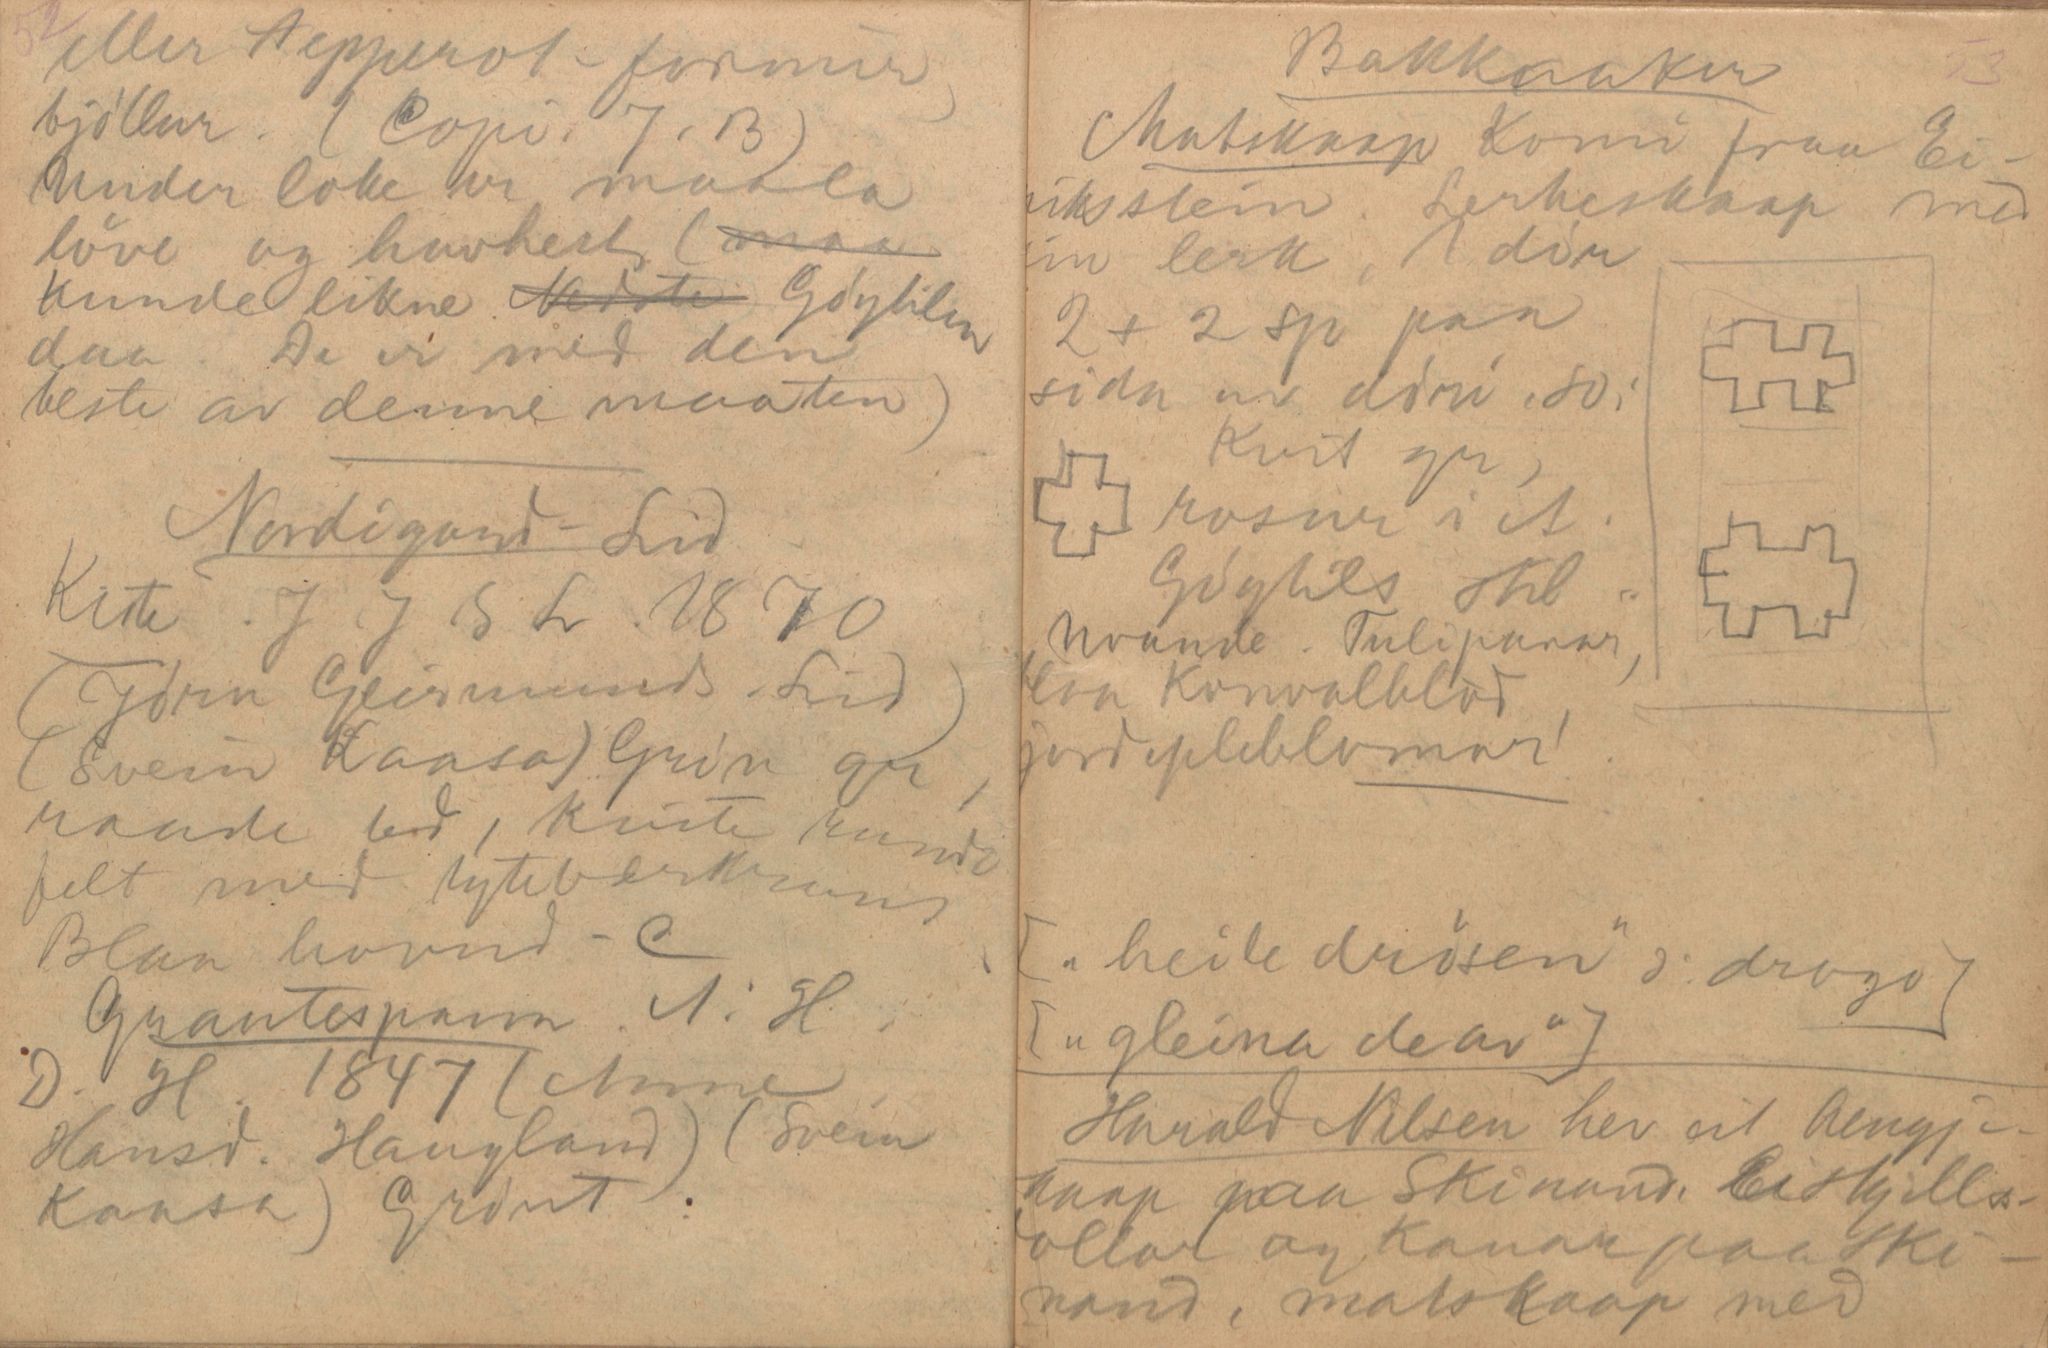 52
eller Tepperot-former,
bjøllur. (Copi. J. B)
Under loke er maala
løve og havhest, (maa
kunde likne Nedste Gøytilen
daa. De er med den
beste av denne maaten)
Nordigard-Lid
Kiste. J J S L. 1870
(Jørn Geirmunds. Lid)
(Svein Kaasa) Grøn gr,
raude bd, kvite runde
felt med tyteberkrans
Blaa hovud - C
Grautespann. A. H.
D. H. 1847 (Anne
Hansd. Haugland) (Svein
Kaasa) Grønt.
53
Bakkaaker
Matskaap Kome fraa Ei-
riksstein. Lerkeskaap med
ein lerk, 1 dør
2 + 2 sp paa
sida av døri, so:
Kvit gr,
rosur i et.
Gøytils stil.
raude. Tulipanar,
blaa Konvalblad,
jordepleblomar!
[„heile drøsen" ɔ: drogo]
[„gleina de av"]
Harald Nilsen her eit hengje-
skaap paa Skinand. Eit skjells-
ollar og Kanar paa Ski-
nand, matskaap med